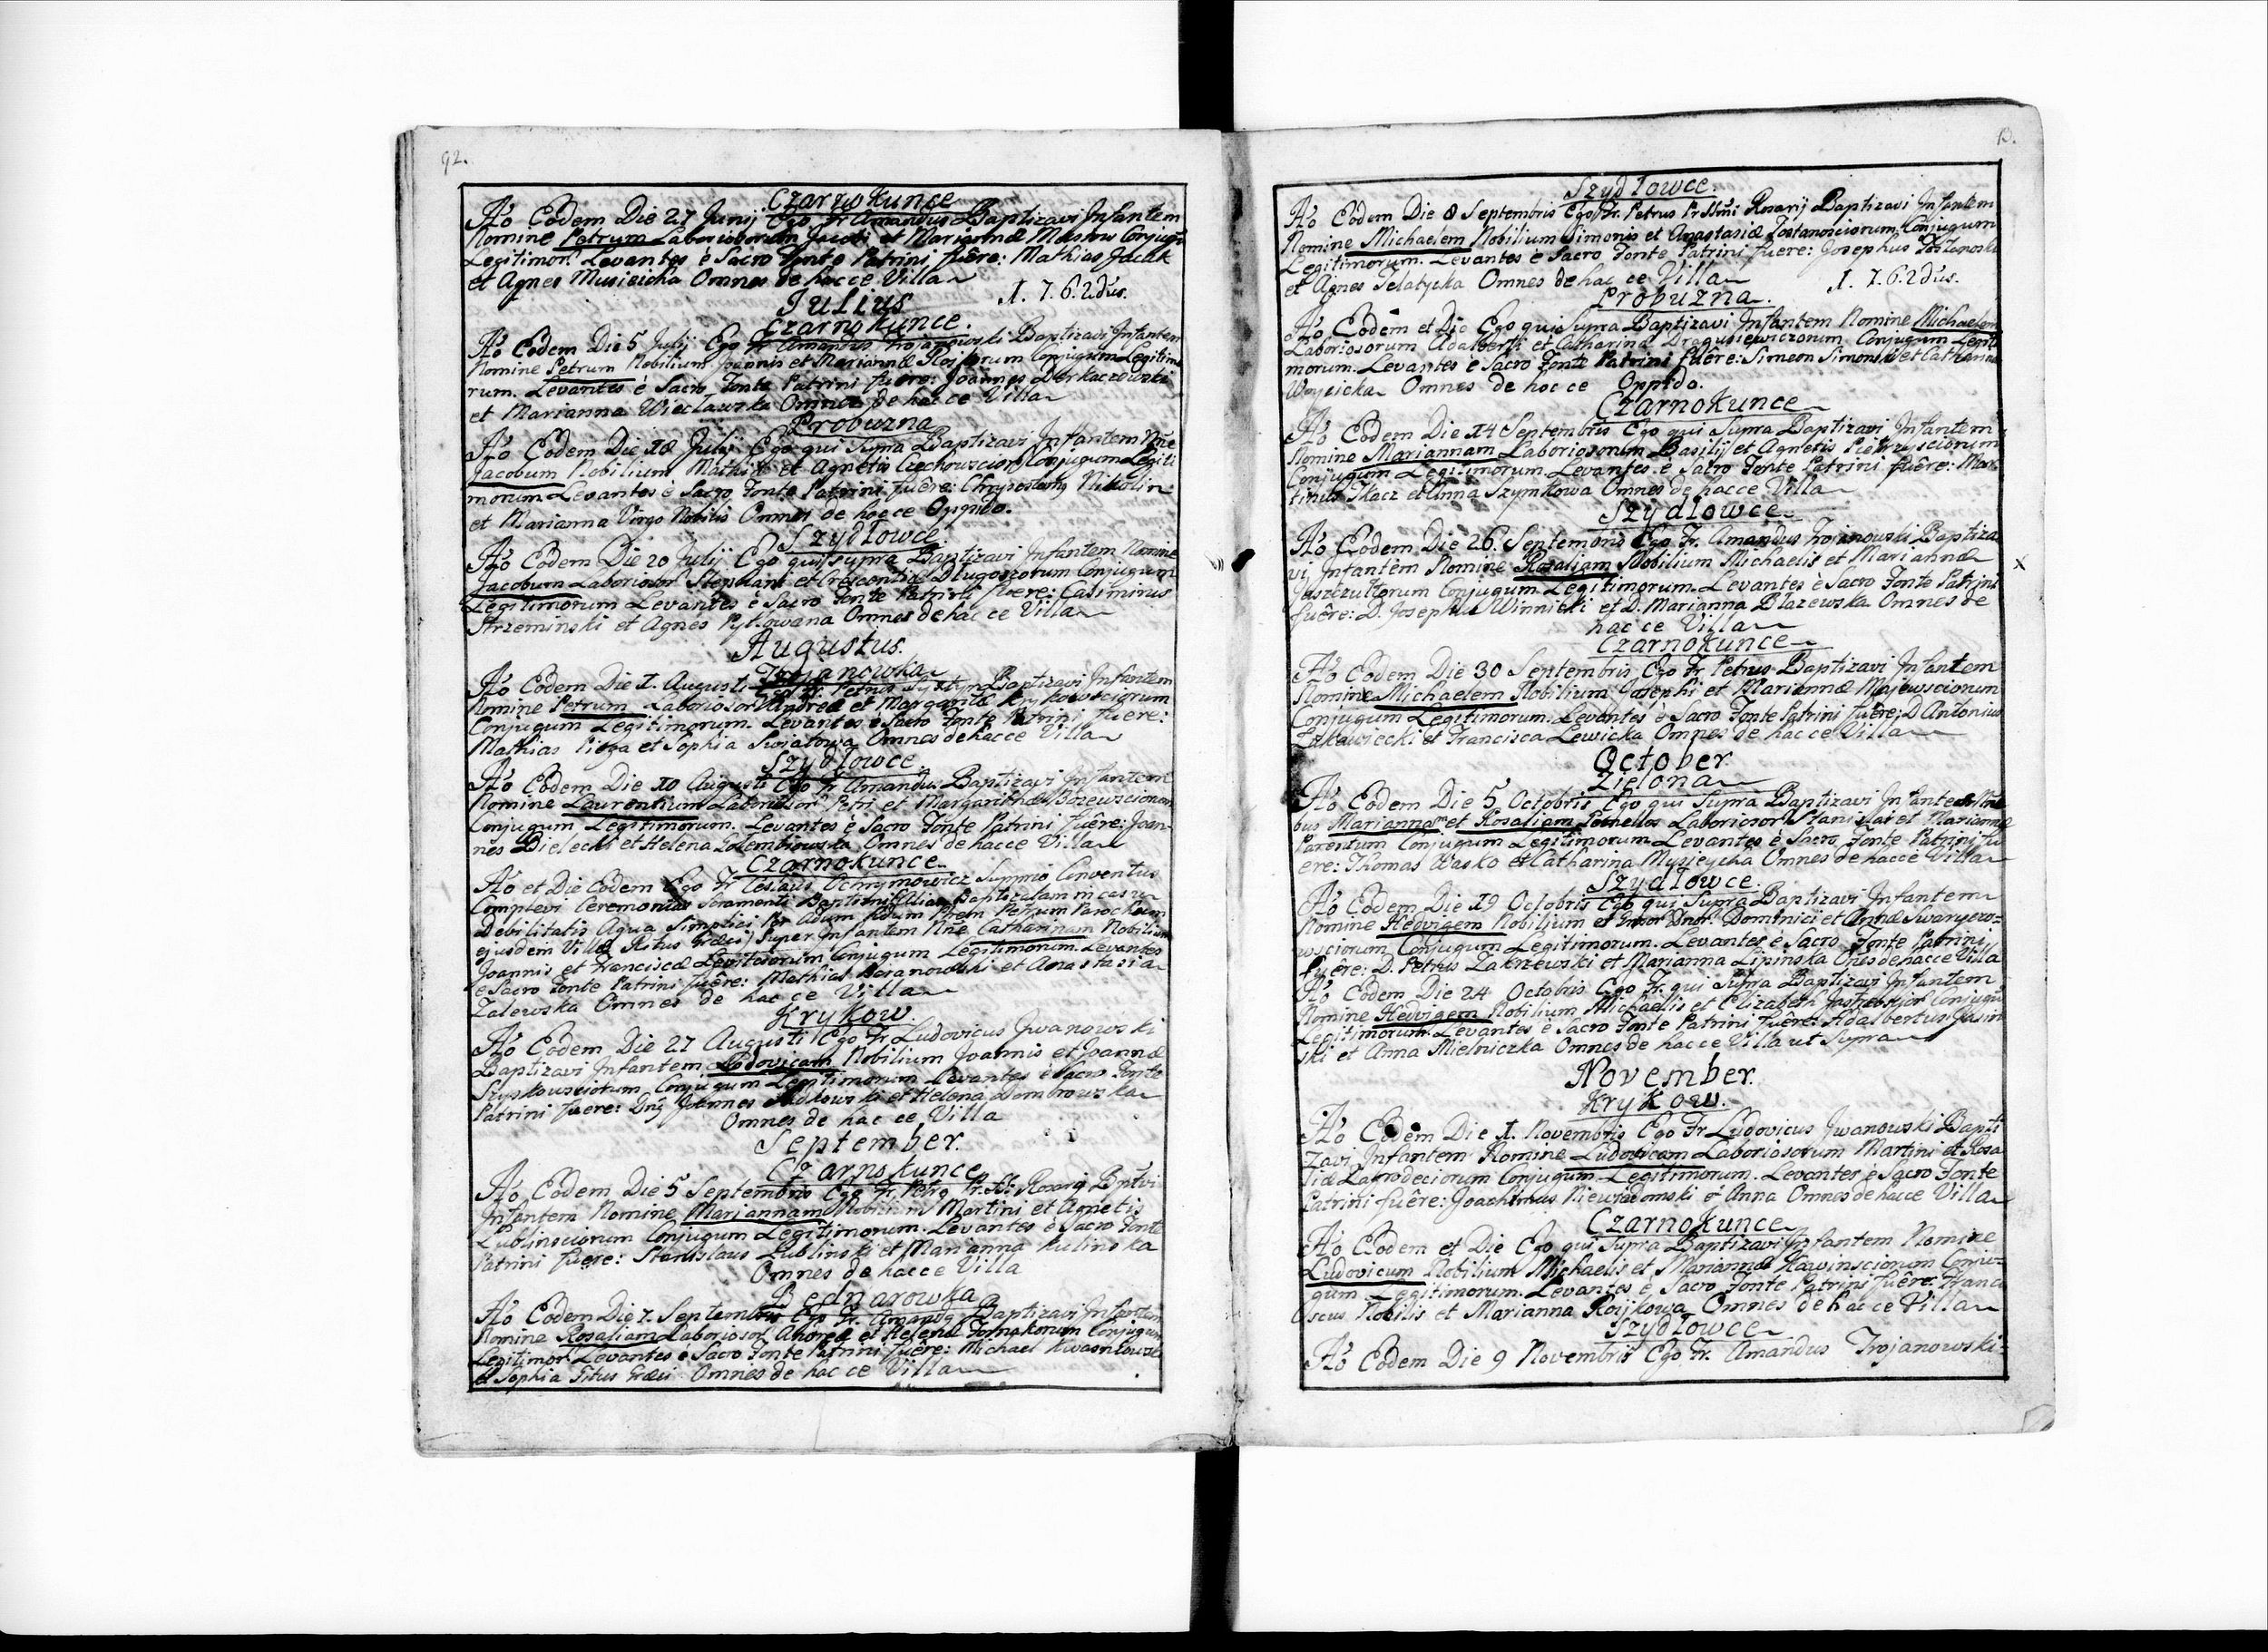 92.
Czarnokunce
Ao Eodem Die 27 Junij Ego Fr Amandus Baptizavi Infantem
Nomine Petrum Laboriosorum Jacobi et Mariannæ Conjugũ
Legitimor. Levantes è Sacro Fonte Patrini fuêre: Mathias Jacak
et Agnes Omnes de hacce Villa
Julius 1.7.6.2dus.
Czarnokunce.
Ao Eodem Die 5 Julij Ego Fr Amandus Trojanowski Baptizavi Infantem
Nomine Petrum Nobilium Joannis et Mariannæ Conjugum Legitimo
rum. Levantes è Sacro Fonte Patrini fuêre: Joannes Derkaczowski
et Marianna Wieclawska Omnes de hacce Villa
Probuzna
Ao Eodem Die 18 Julij Ego qui Supra Baptizavi Infantem Nne
Jacobum Nobilium Mathiæ et Agnetis Conjugum Legiti
morum Levantes è Sacro Fonte Patrini fuêre: Nikolin
et Marianna Virgo Nobilis Omnes de hocce Oppido.
Szydlowce
Ao Eodem Die 20 Julij Ego qui supra Baptizavi Infantem Nomine
Jacobum Laboriosor Stephani et Crescentiæ Dlugoszorum Conjugum
Legitimorum Levantes è Sacro Fonte Patrini fuere: Casimirus
Strzeminski et Agnes Omnes de hac ce Villa
Augustus.
Trojanowka
Ao Eodem Die 1. Augusti Ego Fr. Petrus Baptizavi Infantem
Nomine Petrum Laboriosor Andreæ et Margaritæ
Conjugum Legitimorum. Levantes è Sacro Fonte Patrini fuere:
Mathias et Sophia Swiatowa Omnes de hacce Villa
Szydlowce.
Ao Eodem Die 10 Augusti Ego Fr Amandus Baptizavi Infantem
Nomine Laurentium Laboriosor Petri et Margarithæ
Conjugum Legitimorum. Levantes è Sacro Fonte Patrini fuêre: Joan-
nes Bielecki et Helena Golembiowska Omnes de hacce Villa
Czarnokunce.
Ao et Die Eodem Ego Fr Ceslaus Ochrymowicz Supprio Conventus
Complevi Ceremonias Sacramenti Baptismi
Debilitatis Aqua Simplici Per Petrum Parochum
ejusdem Villæ Ritus Græci) Super Infantem Nne Catharinam Nobilium
Joannis et Franciscæ Conjugum Legitimorum. Levantes
è Sacro Fonte Patrini fuêre: Mathias Baranowski et Anastasia
Zalewska Omnes de hac ce Villa
Krykow.
Ao Eodem Die 27 Augusti Ego Fr Ludovicus Jwanowski
Baptizavi Infantem Ludovicam Nobilium Joannis et Joannæ
Conjugum Legitimorum Levantes è Sacro Fonte
Patrini fuere: Joannes et Helena Dombrowska
Omnes de hac ce Villa
September.
Czarnokunce
Ao Eodem Die 5 Septembris Ego Fr Rosarij
Infantem Nomine Mariannam Nobilium Martini et Agnetis
Lublinsciorum Conjugum Legitimorum. Levantes è Sacro Fonte
Patrini fuere: Stanislaus Lublinski et Marianna Kulinska
Omnes de hacce Villa
Bednarowka
Ao Eodem Die 7. Septembris Ego Fr. Baptizavi Infantem
Nomine Rosaliam Laboriosor Andreæ et Helenæ Conjugum
Legitimor. Levantes è Sacro Fonte Patrini fuêre: Michael
et Sophia Ritus Græci Omnes de hac ce Villa
13.
Szydlowce.
Ao Eodem Die 8 Septembris Ego Fr. Petrus Rosarij Baptizavi Infantem
Nomine Michaelem Nobilium Simonis et Anastasiæ Conjugum
Legitimorum. Levantes è Sacro Fonte Patrini fuere: Josephus
et Agnes Omnes de hac ce Villa
Probuzna. 1.7.6.2dus.
Ao Eodem et Die Ego qui Supra Baptizavi Infantem Nomine Michaelem
Laboriosorum Adalberti et Catharinæ Dragusiewiczorum Conjugum Legiti
morum. Levantes è Sacro Fonte Patrini fuêre: Simeon et Catharina
Woycicka Omnes de hocce Oppido.
Czarnokunce
Ao Eodem Die 14 Septembris Ego qui Supra Baptizavi Infantem
Nomine Mariannam Laboriosorum Basilij et Agnetis
Conjugum Legitimorum. Levantes è Sacro Fonte Patrini fuêre: Mar-
tinus Tkacz et Anna Szymkowa Omnes de hacce Villa
Szydlowce
Ao Eodem Die 26. Septembris Ego Fr. Amandus Trojanowski Baptiza
vi Infantem Nomine Rosaliam Nobilium Michaelis et Mariannæ x
Conjugum Legitimorum. Levantes è Sacro Fonte Patrini
fuêre: D. Josephus Winnicki et D. Marianna Blazewska Omnes de
hac ce Villa
Czarnokunce
Ao Eodem Die 30 Septembris Ego Fr Petrus Baptizavi Infantem
Nomine Michaelem Nobilium Josephi et Mariannæ Majewsciorum
Conjugum Legitimorum. Levantes è Sacro Fonte Patrini fuêre: D Antonius
et Francisca Lewicka Omnes de hac ce Villa
October
Zielona
Ao Eodem Die 5 Octobris Ego qui Supra Baptizavi Infantes
bus Mariannam et Rosaliam Gemellas Laboriosor Stanislai et Mariannæ
Parentum Conjugum Legitimorum Levantes è Sacro Fonte Patrini fu
ere: Thomas Wasko et Catharina Omnes de hacce Villa
Szydlowce.
Ao Eodem Die 19 Octobris Ego qui Supra Baptizavi Infantem
Nomine Hedvigem Nobilium et Dominici et Annæ
wsciorum Conjugum Legitimorum. Levantes è Sacro Fonte Patrini
fuere: D. Petrus Zakrzewski et Marianna Lipinska Omes de hacce Villa
Ao Eodem Die 24 Octobris Ego Fr. qui Supra Baptizavi Infantem
Nomine Hedvigem Nobilium Michaelis et Elizabeth Conjugũ
Legitimorum. Levantes è Sacro Fonte Patrini fuêre: Adalbertus Jasin
ski et Anna Mielniczka Omnes de hacce Villa ut Supra
November.
Krykow.
Ao Eodem Die 1. Novembris Ego Fr Ludovicus Jwanowski Bapti
zavi Infantem Nomine Ludovicam Laboriosorum Martini et Rosa
liæ Conjugum Legitimorum. Levantes è Sacro Fonte
Patrini fuêre: Joachimus Niewiadomski et Anna Omnes de hacce Villa
Czarnokunce
Ao Eodem et Die Ego qui Supra Baptizavi Infantem Nomine
Ludovicum Nobilium Michaelis et Mariannæ Conju-
gum Legitimorum. Levantes è Sacro Fonte Patrini fuêre: Franci
scus Nobilis et Marianna Omnes de hac ce Villa
Szydlowce
Ao Eodem Die 9 Novembris Ego Fr. Amandus Trojanowski-